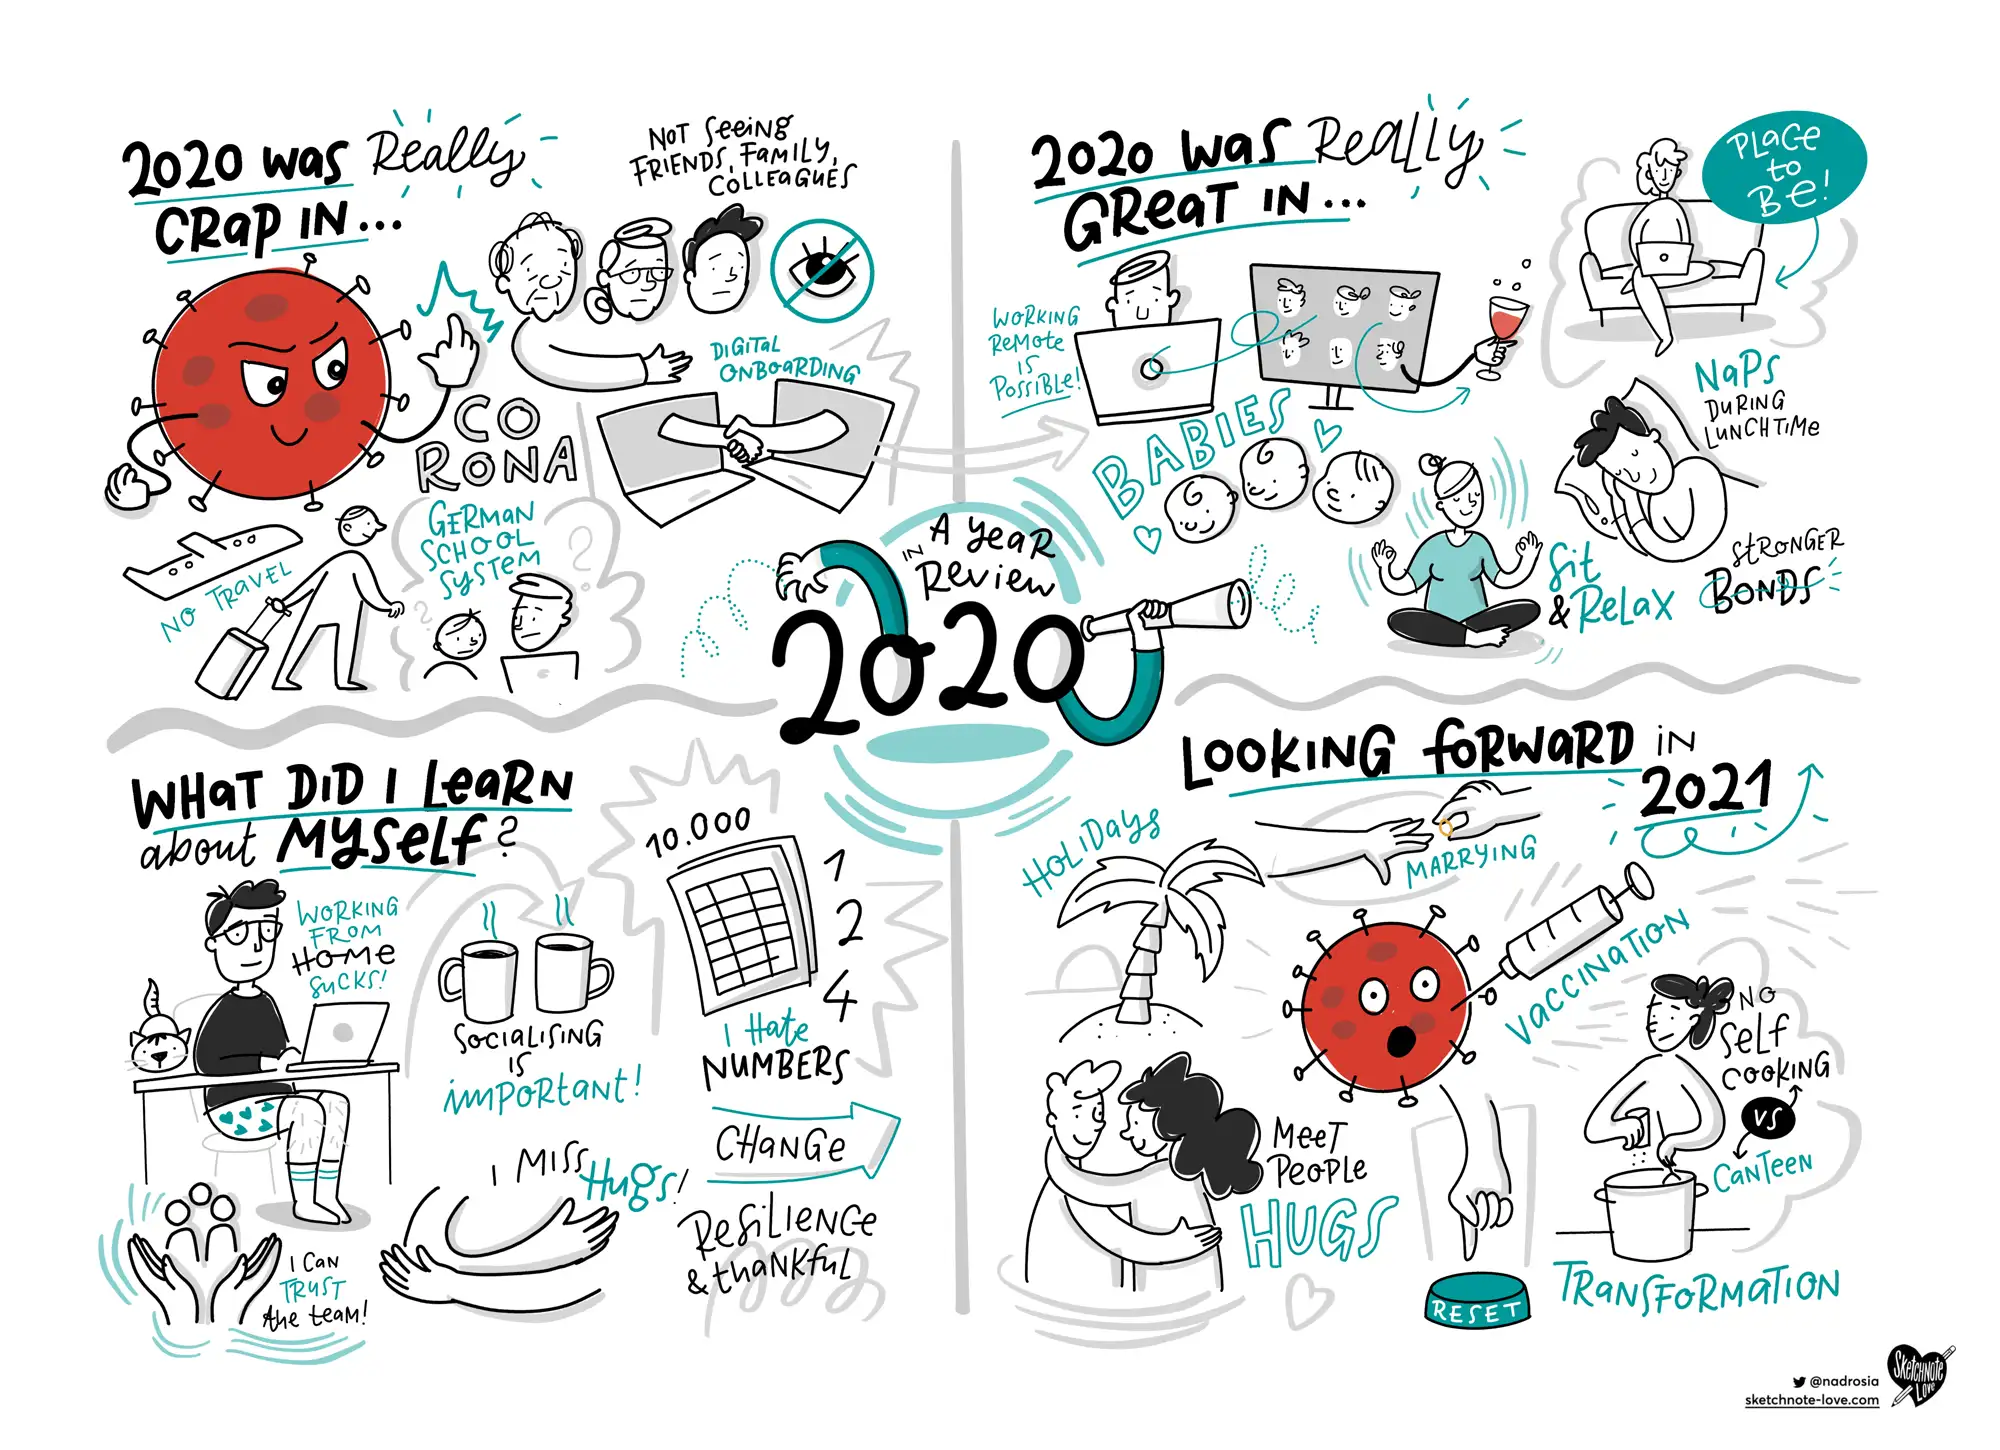 2020 was Really
CRap in...
Not Seeing
Friends, Family,
Colleagues
Digital
Onboarding
CO
RONA
German
School
System
No Travel
2020 was Really
Great in...
Place
to
Be!
Working
Remote
is
Possible!
Babies
Naps
During
Lunchtime
Sit
& Relax
Stronger
Bonds
A Year
in Review
2020
What did I learn
about myself?
Working
From
Home
Sucks!
Socialising
is
important!
10.000
1
2
4
I Hate
Numbers
I can
Trust
the team!
I miss
Hugs!
Change
Resilience
& thankful
Looking forward in
2021
Holidays
Marrying
Vaccination
Meet
People
Hugs
Reset
No
Self
Cooking
vs
Canteen
Transformation
@nadrosia
sketchnote-love.com
Sketchnote
Love